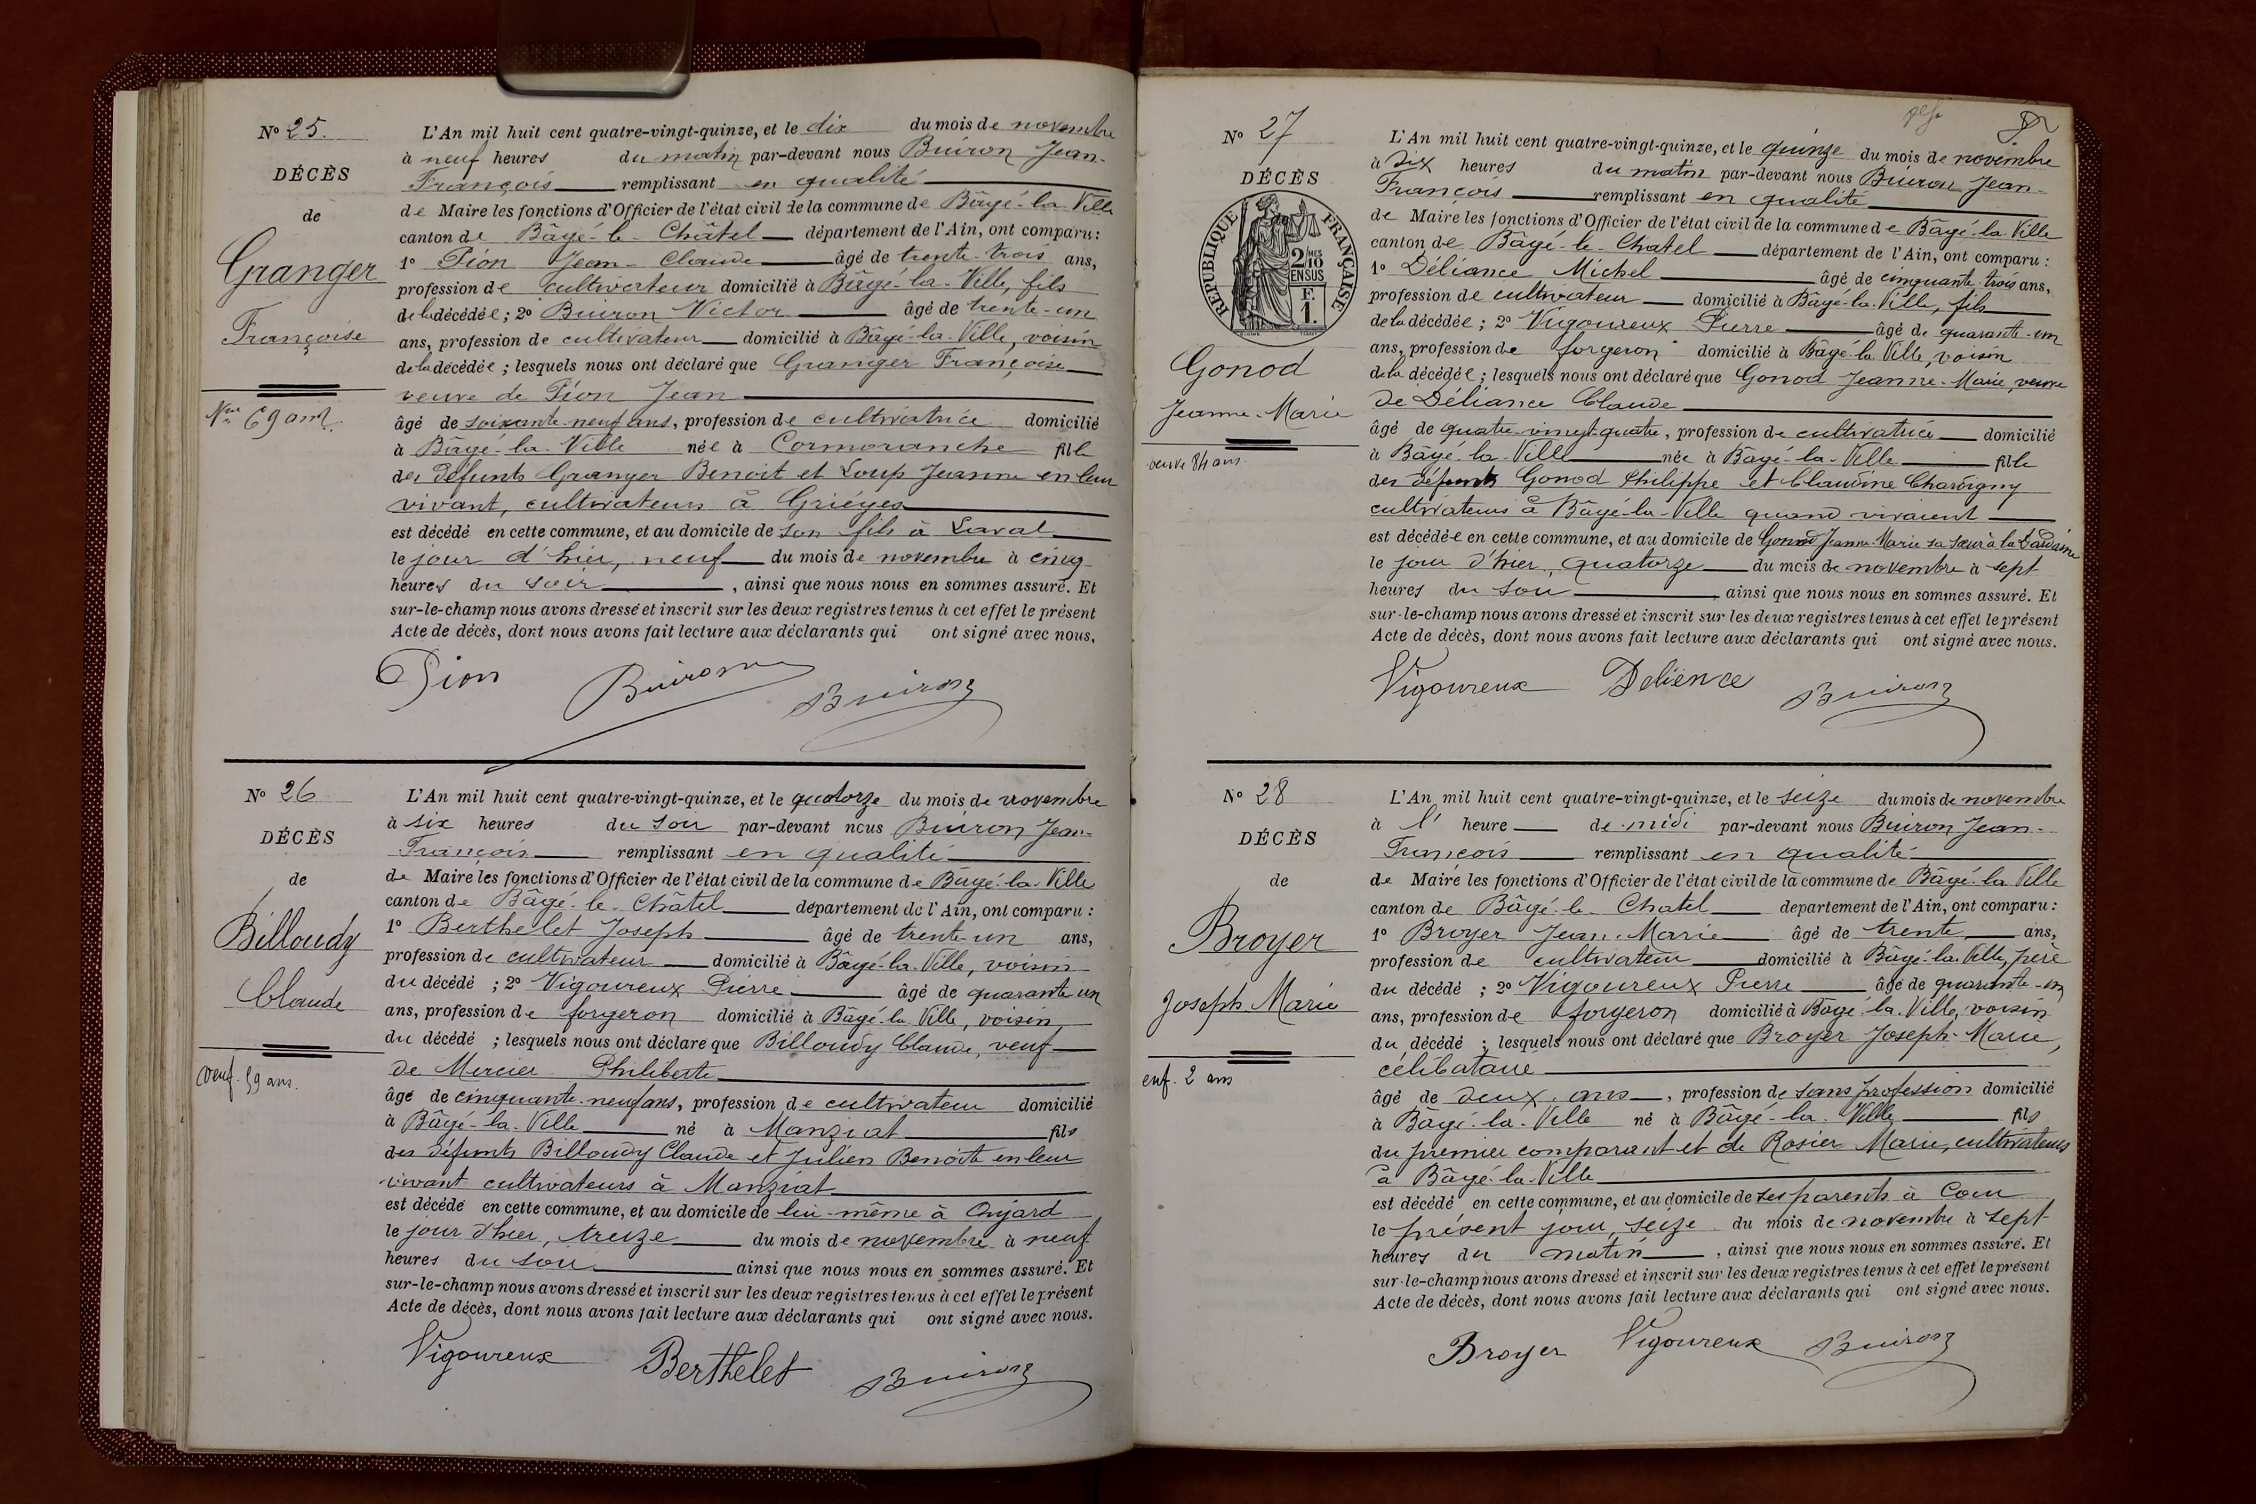 No 25.
DÉCÈS
de
Granger
Françoise
Nve 69 ans.
L'An mil huit cent quatre-vingt-quinze, et le dix du mois de novembre
à neuf heures du matin par-devant nous Buiron Jean-
François remplissant en qualité
de Maire les fonctions d'Officier de l'état civil de la commune de Bâgé-la-Ville
canton de Bâgé-le-Châtel département de l'Ain, ont comparu:
1o Pion Jean-Claude âgé de trente-trois ans,
profession de cultivateur domicilié à Bâgé-la-Ville, fils
de la décédée; 2o Buiron Victor âgé de trente-un
ans, profession de cultivateur domicilié à Bâgé-la-Ville, voisin
de la décédée; lesquels nous ont déclaré que Granger Françoise
veuve de Pion Jean
âgé de soixante-neuf ans, profession de cultivatrice domicilié
à Bâgé-la-Ville née à Cormoranche fille
des défunts Granger Benoit et Loup Jeanne en leur
vivant, cultivateurs à Griéges
est décédé en cette commune, et au domicile de son fils à Laval
le jour d'hier, neuf du mois de novembre à cinq
heures du soir, ainsi que nous nous en sommes assuré. Et
sur-le-champ nous avons dressé et inscrit sur les deux registres tenus à cet effet le présent
Acte de décès, dont nous avons fait lecture aux déclarants qui ont signé avec nous.
Pion Buiron Buiron
No 26
DÉCÈS
de
Billoudy
Claude
veuf. 59 ans.
L'An mil huit cent quatre-vingt-quinze, et le quatorze du mois de novembre
à six heures du soir par-devant nous Buiron Jean-
François remplissant en qualité
de Maire les fonctions d'Officier de l'état civil de la commune de Bâgé-la-Ville
canton de Bâgé-le-Châtel département de l'Ain, ont comparu:
1o Berthelet Joseph âgé de trente-un ans,
profession de cultivateur domicilié à Bâgé-la-Ville, voisin
du décédé; 2o Vigoureux Pierre âgé de quarante-un
ans, profession de forgeron domicilié à Bâgé-la-Ville, voisin
du décédé; lesquels nous ont déclaré que Billoudy Claude, veuf
de Mercier Philiberte
âgé de cinquante-neuf ans, profession de cultivateur domicilié
à Bâgé-la-Ville né à Manziat fils
des défunts Billoudy Claude et Julien Benoite en leur
vivant cultivateurs à Manziat
est décédé en cette commune, et au domicile de lui-même à Onjard
le jour d'hier, treize du mois de novembre à neuf
heures du soir ainsi que nous nous en sommes assuré. Et
sur-le-champ nous avons dressé et inscrit sur les deux registres tenus à cet effet le présent
Acte de décès, dont nous avons fait lecture aux déclarants qui ont signé avec nous.
Vigoureux Berthelet Buiron
No 27
DÉCÈS
RÉPUBLIQUE FRANÇAISE
2/10 MES
EN SUS
F.
1.
Gonod
Jeanne-Marie
veuve 84 ans.
L'An mil huit cent quatre-vingt-quinze, et le quinze du mois de novembre
à dix heures du matin par-devant nous Buiron Jean-
François remplissant en qualité
de Maire les fonctions d'Officier de l'état civil de la commune de Bâgé-la-Ville
canton de Bâgé-le-Chatel département de l'Ain, ont comparu:
1o Déliance Michel âgé de cinquante-trois ans,
profession de cultivateur domicilié à Bâgé-la-Ville, fils
de la décédée; 2o Vigoureux Pierre âgé de quarante-un
ans, profession de forgeron domicilié à Bâgé-la-Ville, voisin
de la décédée; lesquels nous ont déclaré que Gonod Jeanne-Marie, veuve
de Déliance Claude
âgé de quatre-vingt-quatre, profession de cultivatrice domicilié
à Bâgé-la-Ville née à Bâgé-la-Ville fille
des défunts Gonod Philippe et Claudine Chavigny
cultivateurs à Bâgé-la-Ville quand vivaient
est décédée en cette commune, et au domicile de Gonod Jeanne-Marie sa sœur à la
le jour d'hier, quatorze du mois de novembre à sept
heures du soir ainsi que nous nous en sommes assuré. Et
sur-le-champ nous avons dressé et inscrit sur les deux registres tenus à cet effet le présent
Acte de décès, dont nous avons fait lecture aux déclarants qui ont signé avec nous.
Vigoureux Delience Buiron
No 28
DÉCÈS
de
Broyer
Joseph Marie
enf. 2 ans
L'An mil huit cent quatre-vingt-quinze, et le seize du mois de novembre
à l' heure de midi par-devant nous Buiron Jean-
François remplissant en qualité
de Maire les fonctions d'Officier de l'état civil de la commune de Bâgé-la-Ville
canton de Bâgé-le-Chatel département de l'Ain, ont comparu:
1o Broyer Jean-Marie âgé de trente ans,
profession de cultivateur domicilié à Bâgé-la-Ville, père
du décédé; 2o Vigoureux Pierre âgé de quarante-un
ans, profession de forgeron domicilié à Bâgé-la-Ville, voisin
du décédé; lesquels nous ont déclaré que Broyer Joseph-Marie,
célibataire
âgé de deux ans, profession de sans profession domicilié
à Bâgé-la-Ville né à Bâgé-la-Ville fils
du premier comparant et de Rosier Marie, cultivateurs
à Bâgé-la-Ville
est décédé en cette commune, et au domicile de ses parents à Cour
le présent jour, seize du mois de novembre à sept
heures du matin, ainsi que nous nous en sommes assuré. Et
sur-le-champ nous avons dressé et inscrit sur les deux registres tenus à cet effet le présent
Acte de décès, dont nous avons fait lecture aux déclarants qui ont signé avec nous.
Broyer Vigoureux Buiron